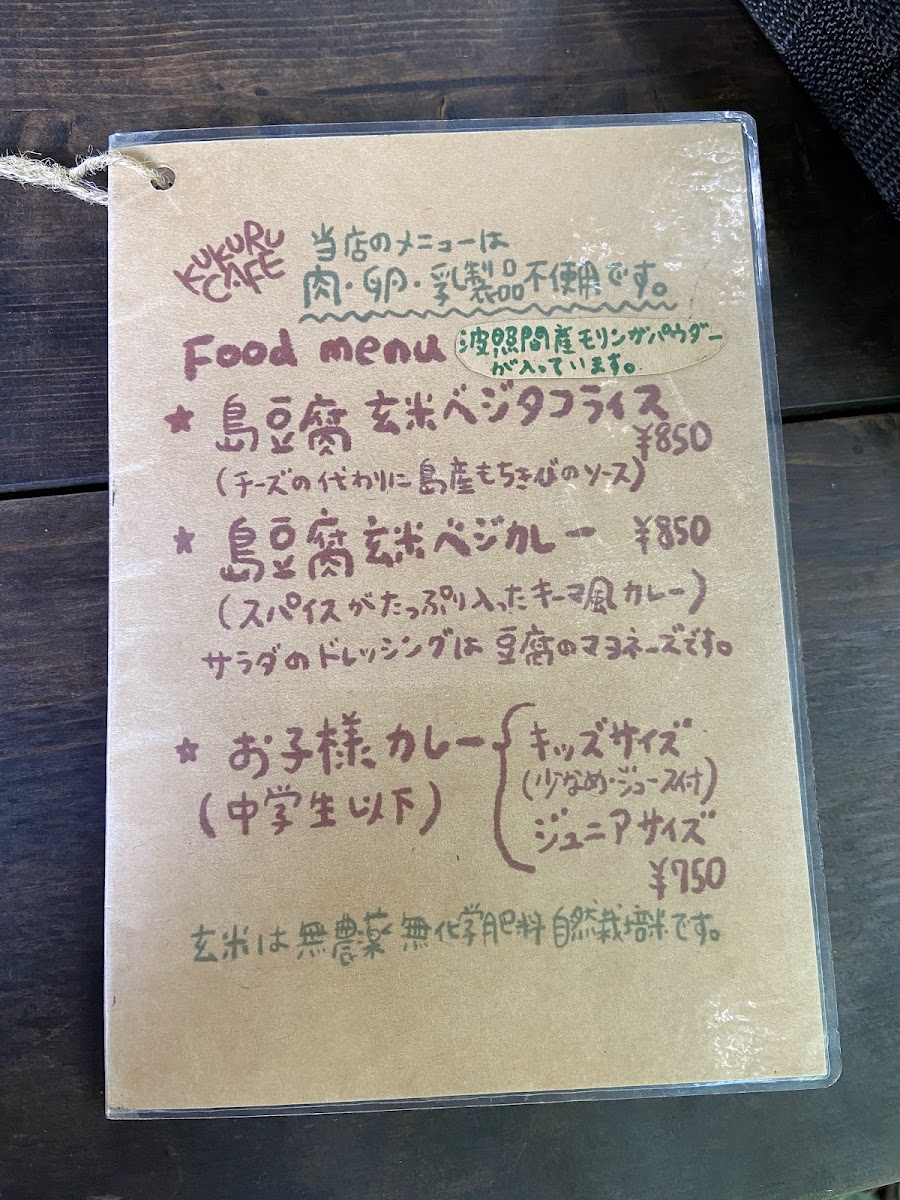 KUKURU
CAFE
当店のメニューは
肉・卵・乳製品不使用です。
Food menu
波照間産モリンガパウダー
が入っています。
★ 島豆腐 玄米ベジタコライス
¥850
(チーズの代わりに島産もちきびのソース)
★ 島豆腐玄米ベジカレー ¥850
(スパイスがたっぷり入ったキーマ風カレー)
サラダのドレッシングは豆腐のマヨネーズです。
★ お子様カレー
(中学生以下)
キッズサイズ
(少なめ・ジュース付)
ジュニアサイズ
¥750
玄米は無農薬 無化学肥料 自然栽培米です。